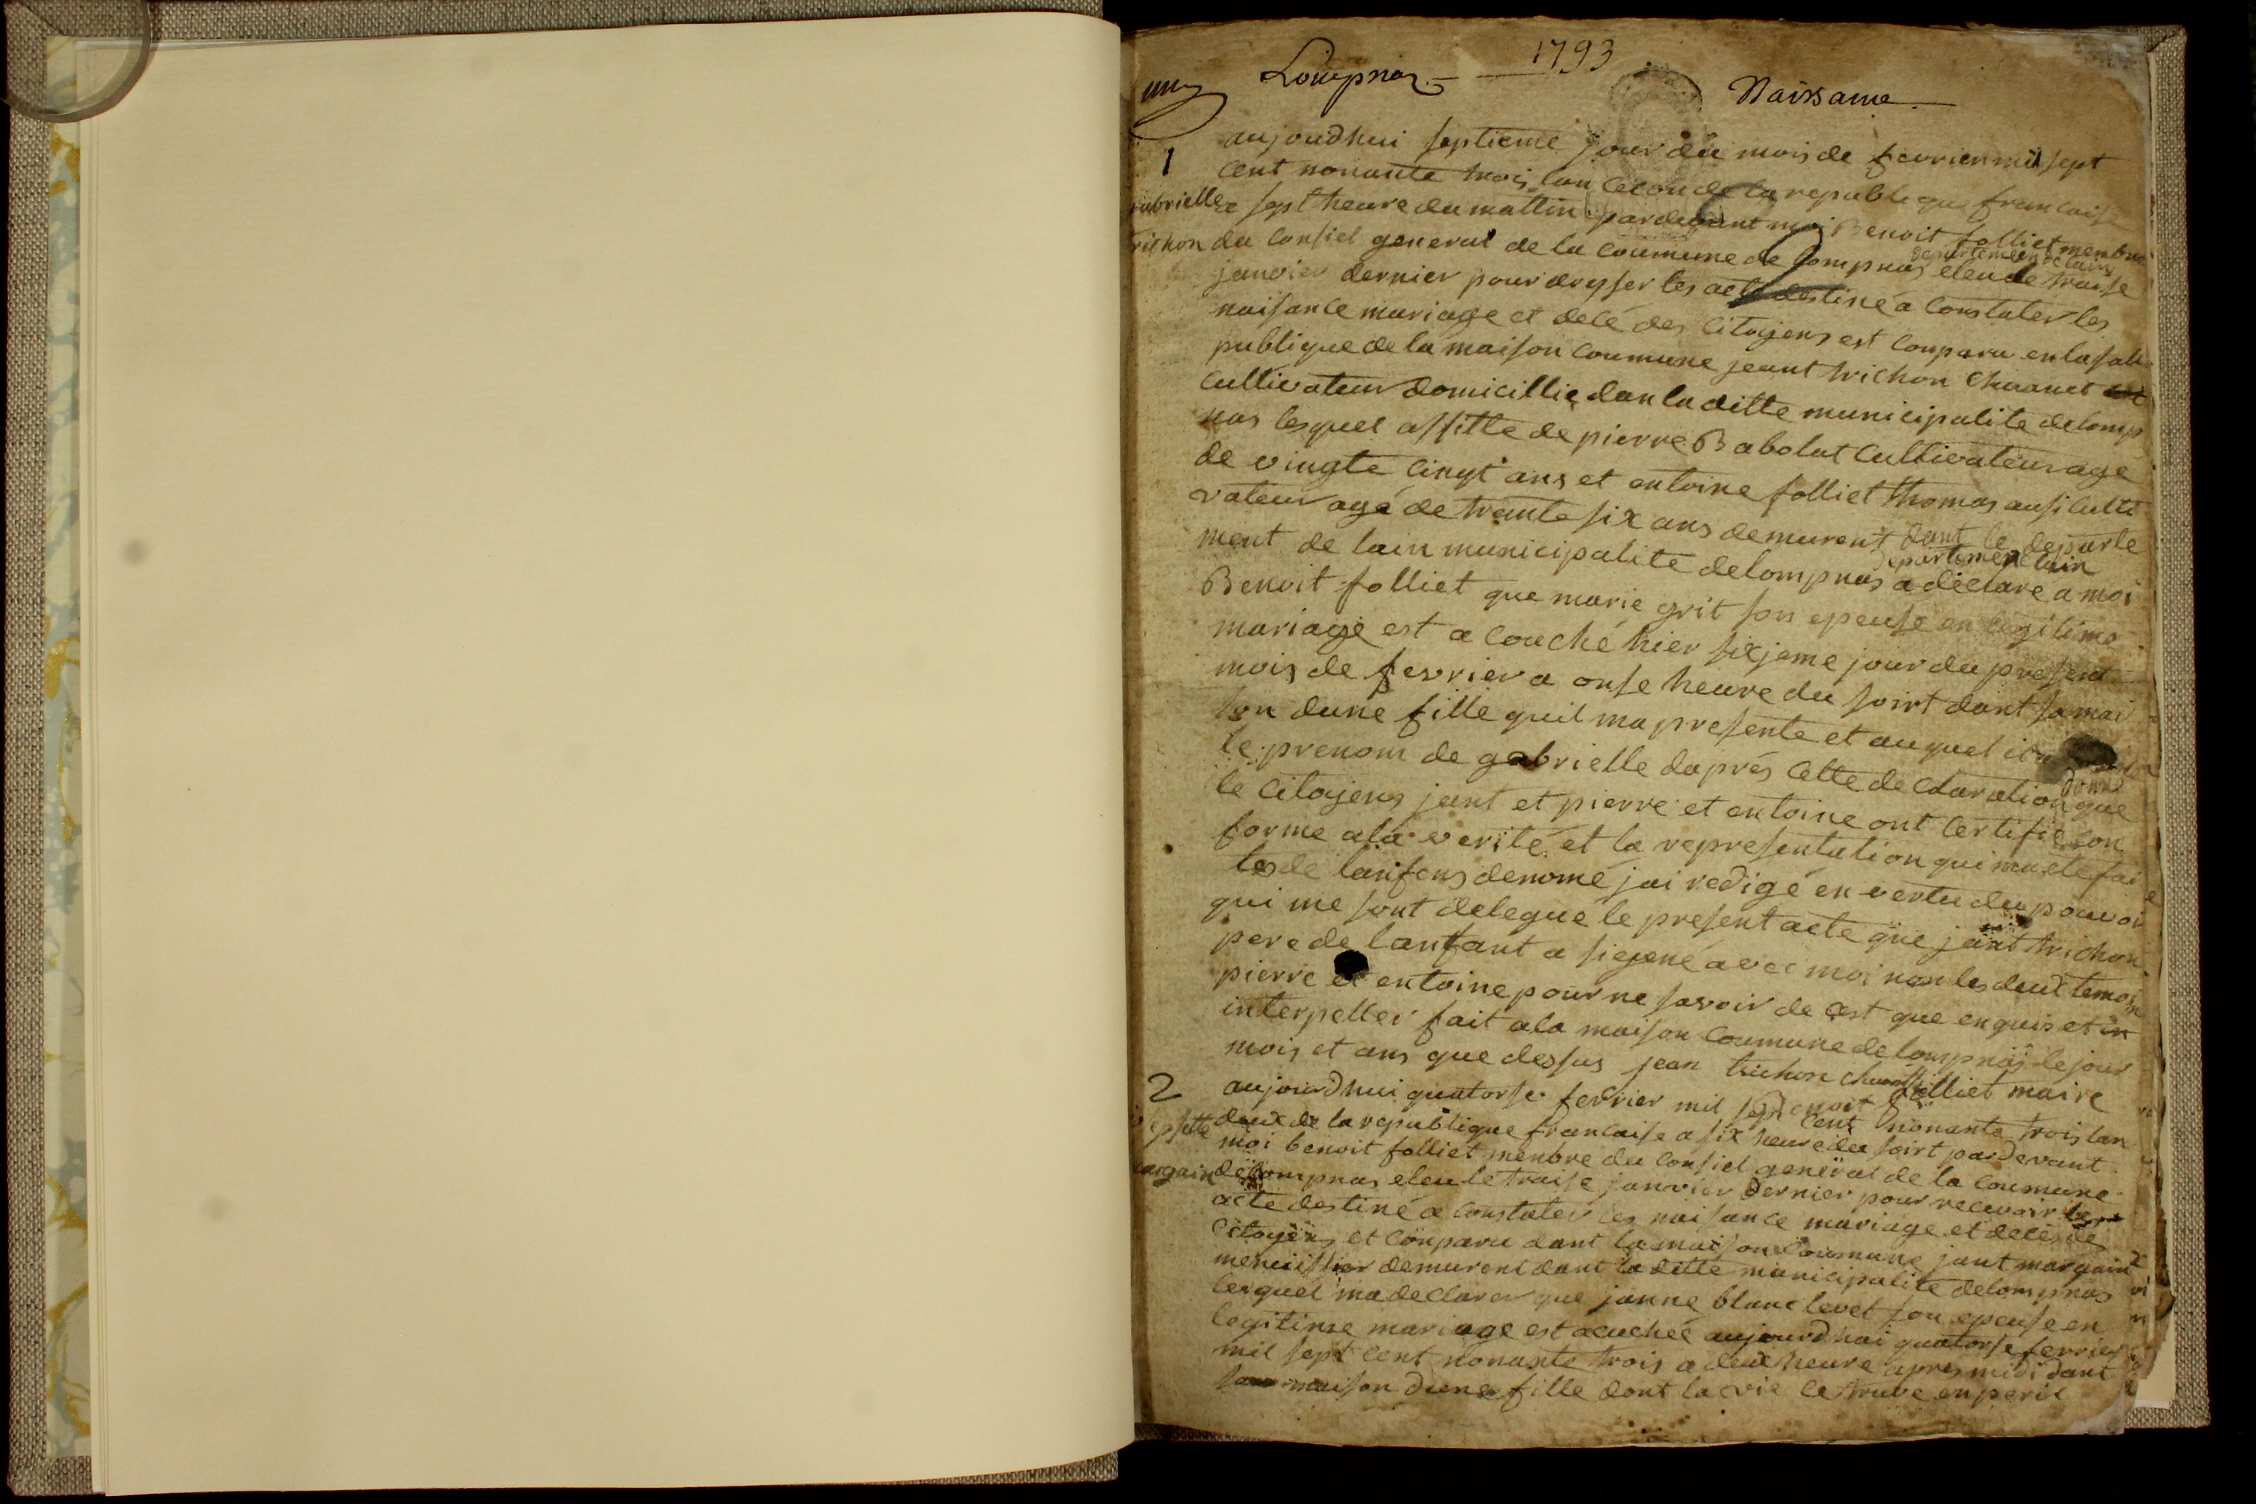 1793
Lompnas
Naissance
1
aujoudhui septieme jour du mois de fevrier mil sept
cent nonante trois lan ceconde la republeque francaise
gabrielle
a sept heure du mattin pardevant moi Benoit folliet membre
trichon
du consiel general de la coumune de lompnas eleu le traise
departement de lain
janvier dernier pour dresser les acte destiné a constater les
naisance mariage et décé des citoyens est conparu en la sale
publique de la maison coumune jeant trichon charvet
cultivateur domicillié dan la ditte municipalite de lomp
nas lesquel assitte de pierre Babolat cultivateur age
de vingte cinqt ans et entoine folliet thomas ausi culti
vateur agé de trante six ans demurent dant le departe
ment de lain municipalite de lompnas a déclaré a moi
departement lain
Benoit folliet que marie grit son epeuse en legitime
mariage est a couché hier sixjeme jour du present
mois de fevrier a onse heure du soirt dant sa mai
son dune fille quil ma presente et auquel il
donné
le prenom de gabrielle daprés cette declaration que
le citoyens jant et pierre et entoine ont certifié con
forme a la verité et la representation qui ma ete fai
te de lanfens denomé jai redigé en vertu du pouvoir
qui me sont delegue le present acte que jant trichon
pere de lanfant a siegné avec moi non les deux temoin
pierre et entoine pour ne savoir de cest que enquis et
interpeller fait a la maison coumune de lompnas le jour
mois et ans que dessus jean trichon
Benoit folliet maire
2
aujourdhui quatorse fevrier mil sept cent nonante trois lan
deux de la republique francaise a six heure du soirt pardevant
moi benoit folliet menbre du consiel general de la coumune
margain
de lompnas eleu le traise janvier dernier pour recevoir les
acte destiné a constater les naisance mariage et deces des
citoyens et conparu dant la maison coumune jant margain
menuissier demurent dant la ditte municipalite de lompnas
lesquel ma declarer que janne blanc levet son epeuse en
legitime mariage est acuchée aujourdhui quatorse fevrier
mil sept cent nonante trois a deux heure apres midi dant
sa maison dune fille dont la vie ce truve en peril